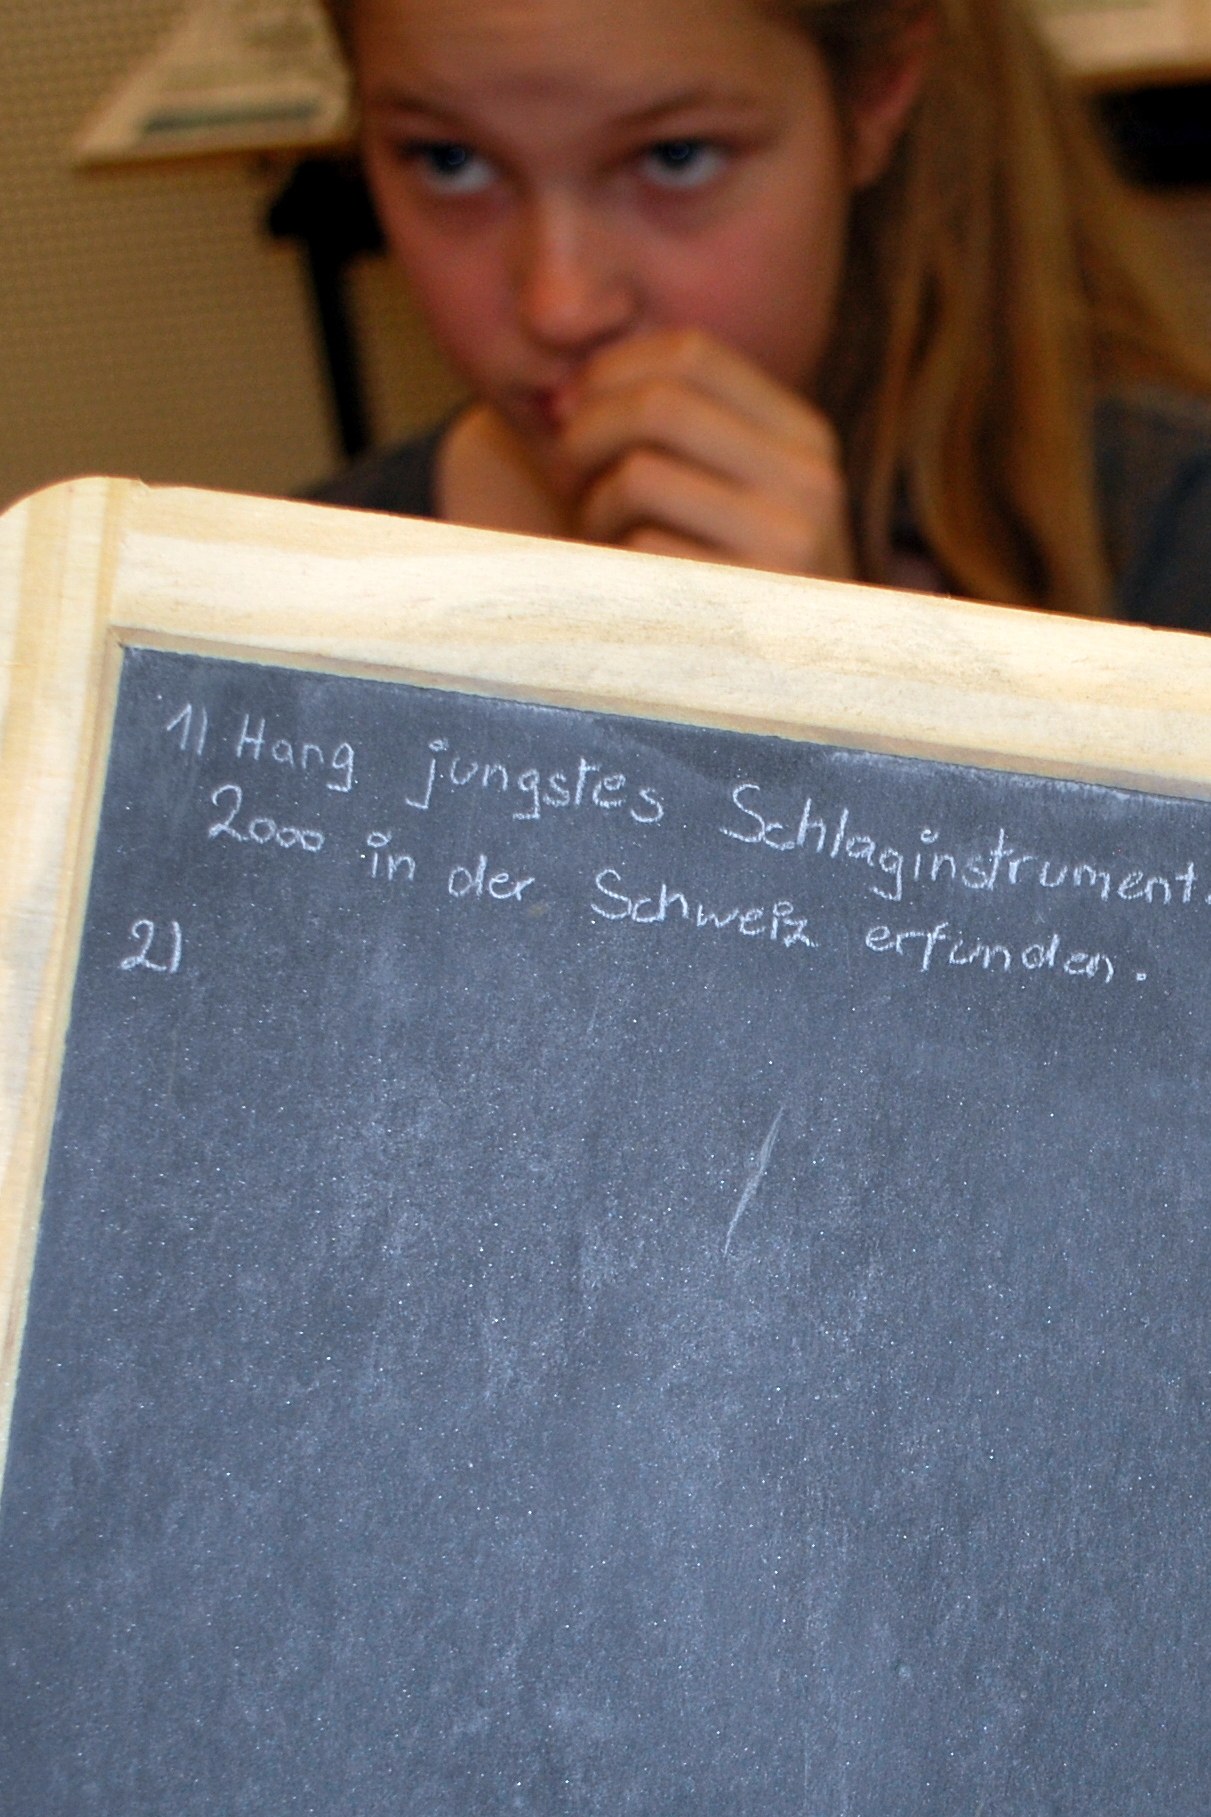 1) Hang jungstes Schlaginstrument.
2000 in der Schweiz erfunden.
2)